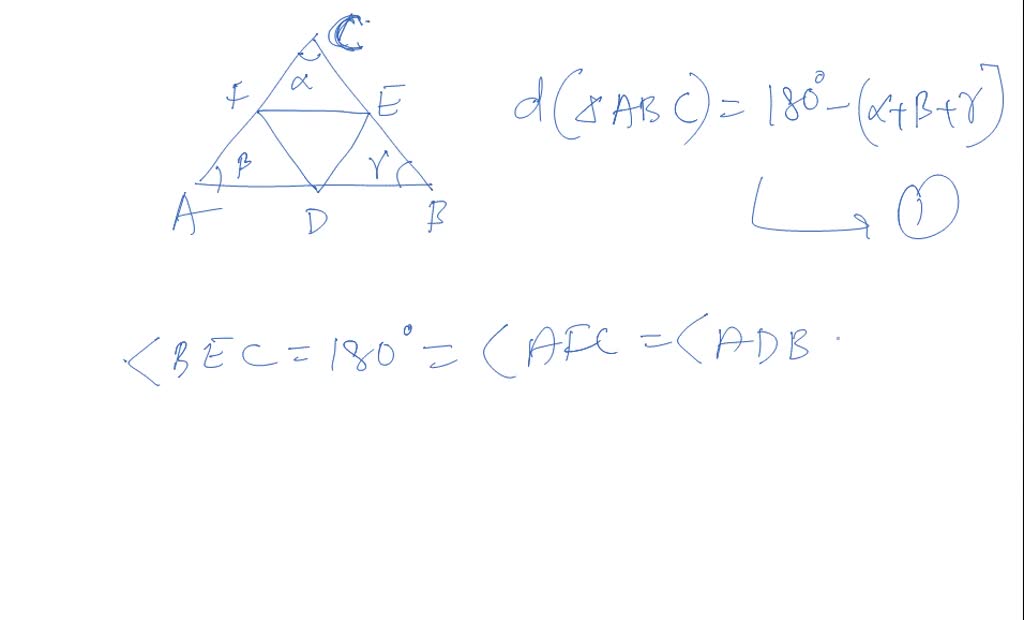 C
α
F E
β γ
A D B
d(△ABC) = 180° - (α+β+γ]
①
<BEC = 180° = <AFC = <ADB.